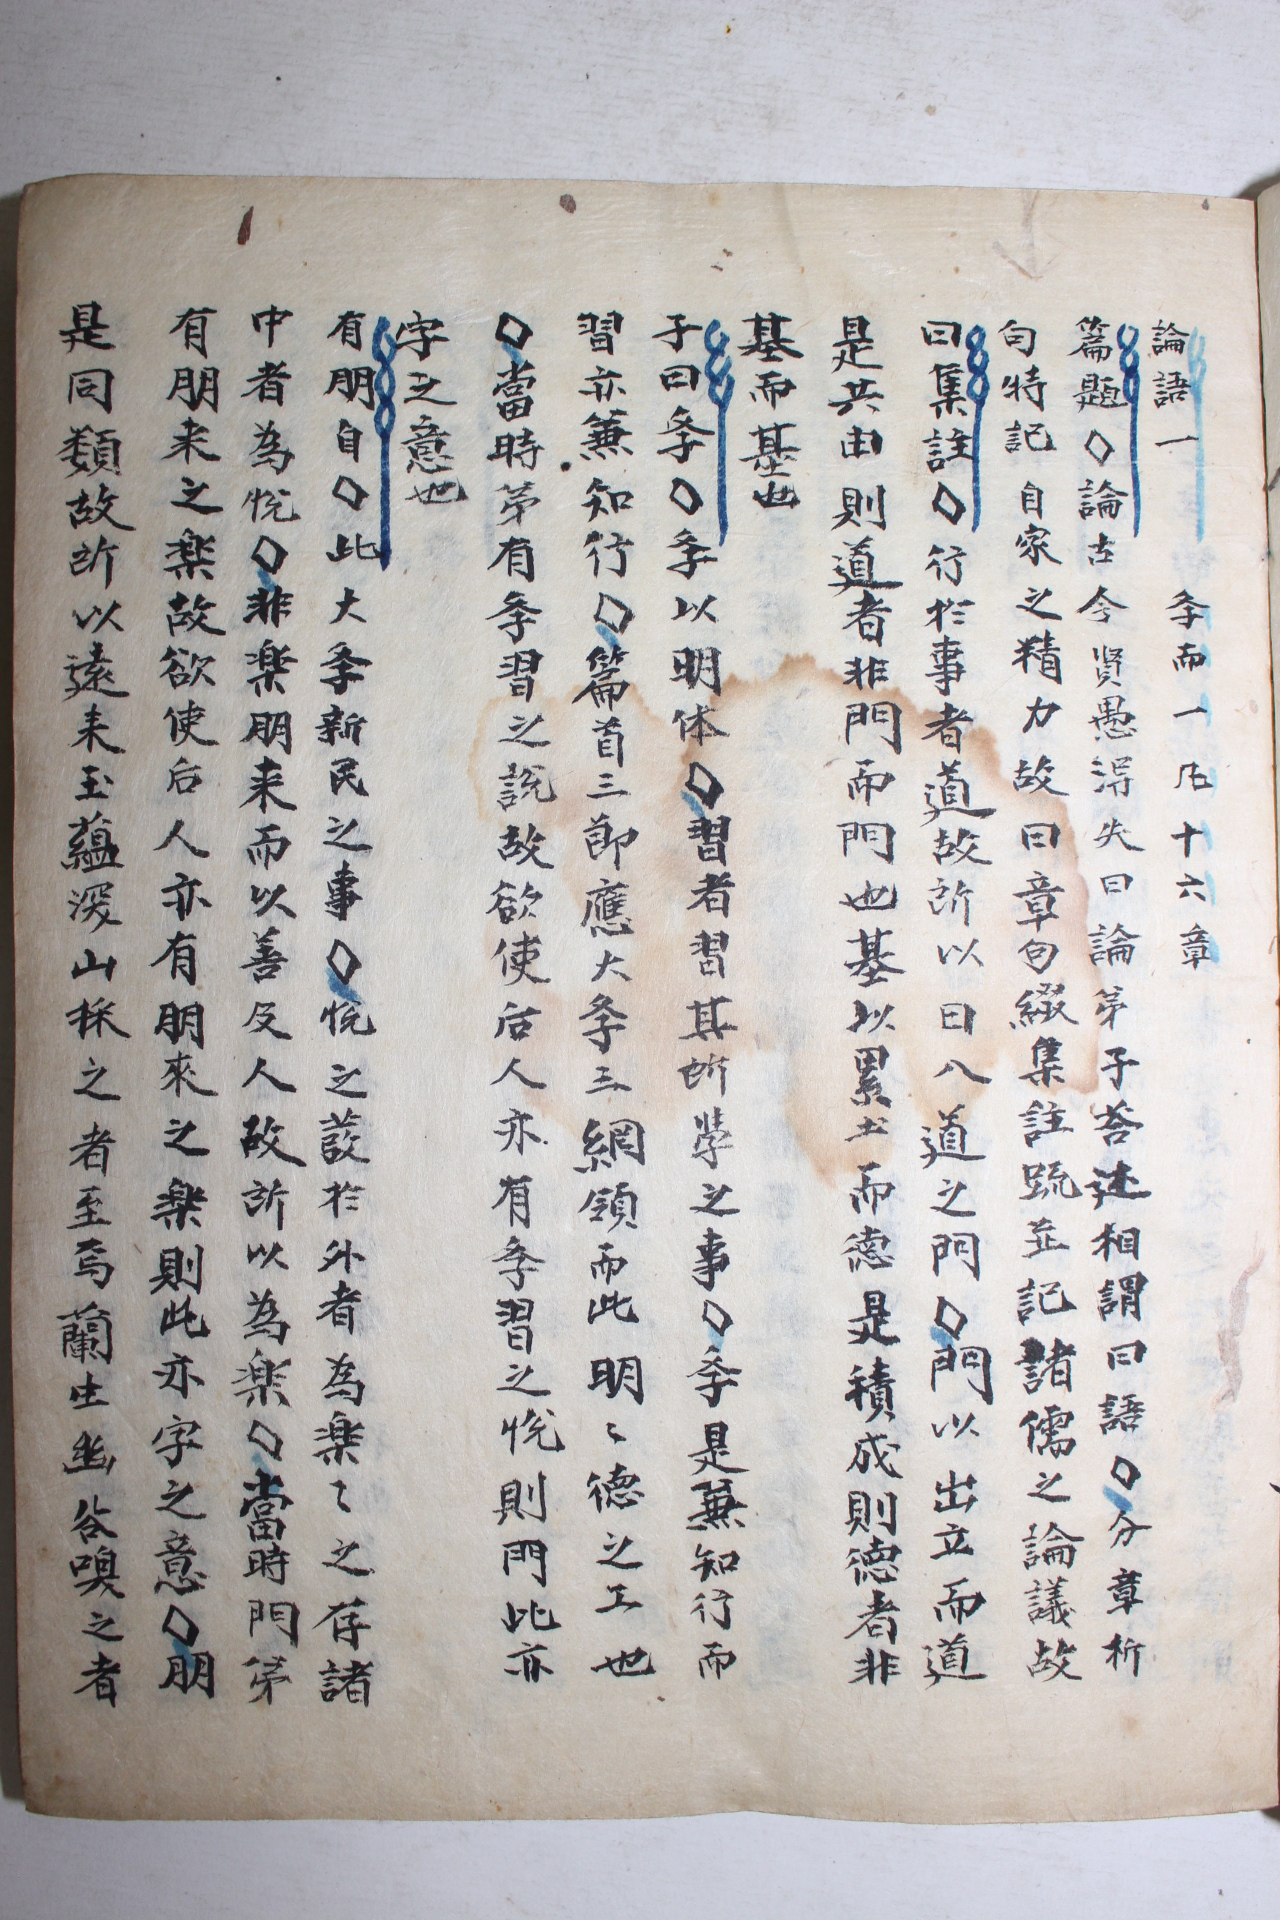 論語一　季而一凡十六章
篇題◇論古今賢愚得失曰論第子荅述相謂曰語◇分章析
句特記自家之精力故曰章句綴集註䟽並記諸儒之論議故
曰集註◇行於事者道故所以曰入道之門◇門以出立而道
是共由則道者非門而門也基以累土而德是積成則德者非
基而基也
子曰季◇季以明体◇習者習其所學之事◇季是兼知行而
習亦兼知行◇篇首三節應大季三綱領而此明〻德之工也
◇當時苐有季習之說故欲使后人亦有季習之悅則門此亦
字之意也
有朋自◇此大季新民之事◇悅之蕟於外者為楽〻之存諸
中者為悅◇非楽朋来而以善及人故所以為楽◇當時門苐
有朋来之楽故欲使后人亦有朋來之楽則此亦字之意◇朋
是同類故所以遠来玉蘊深山採之者至焉蘭生幽谷嗅之者